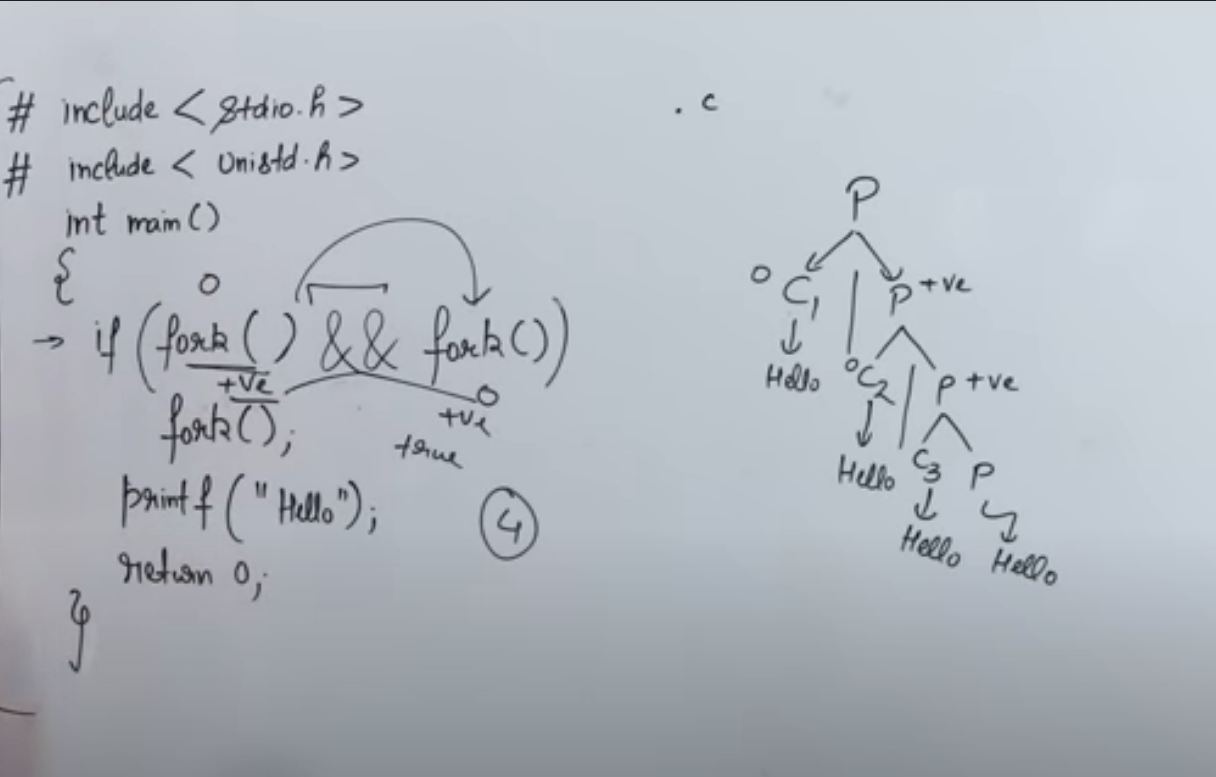 # include < stdio.h >
. c
# include < unistd.h >
int main()
{
0
→ if (fork() && fork())
+ve
0
+ve
true
fork();
printf ("Hello");
4
return 0;
}
P
0 C1 P +ve
Hello 0 C2 P +ve
Hello C3 P
Hello Hello